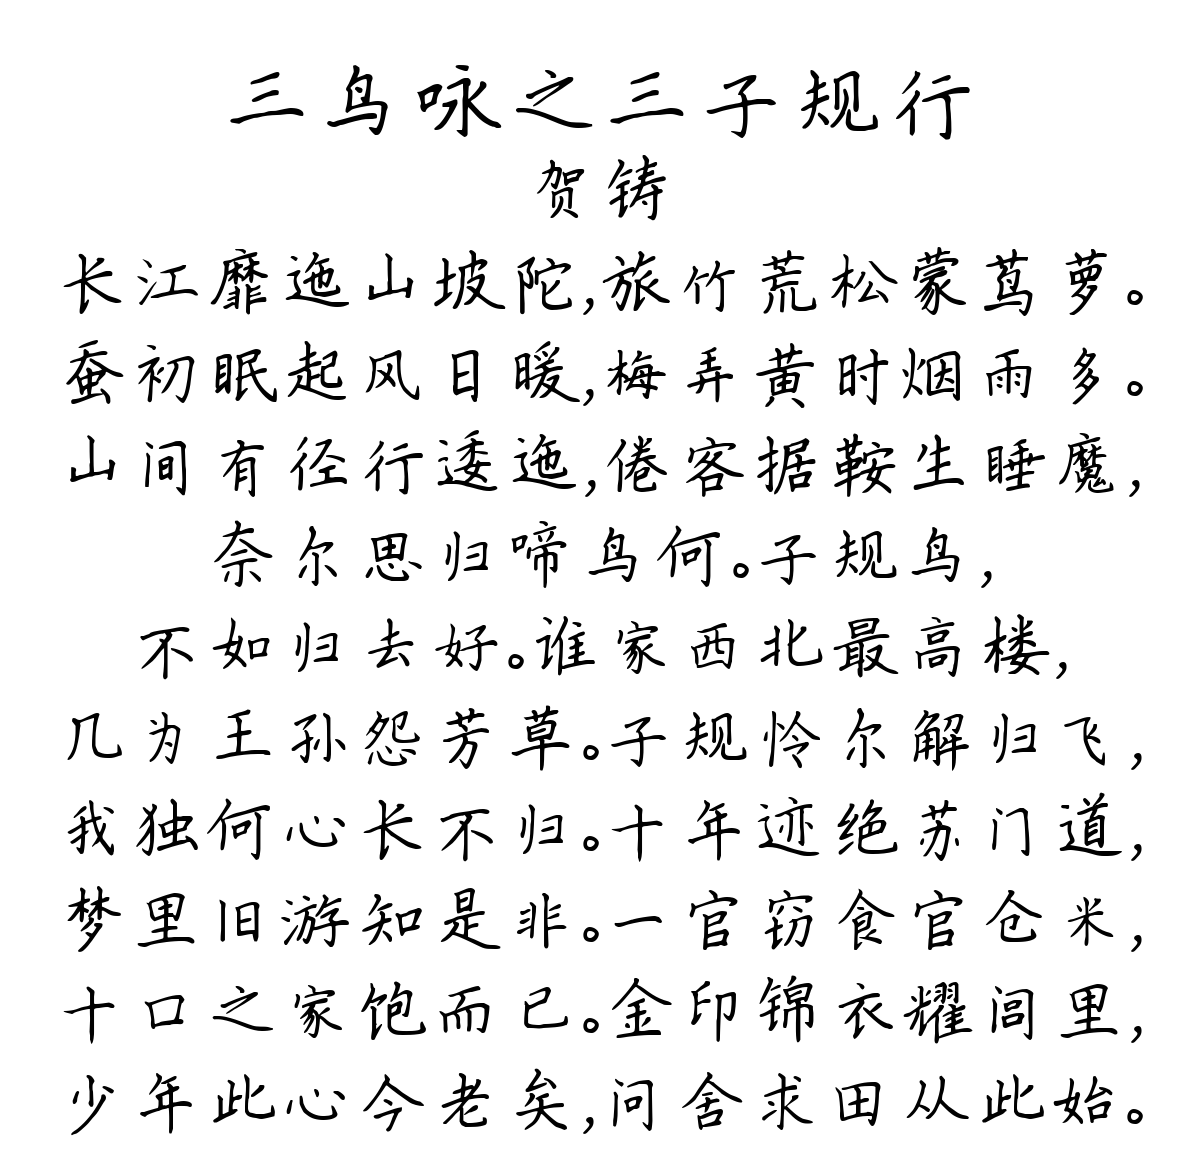 三鸟咏之三子规行
贺铸
长江靡迤山坡陀,旅竹荒松蒙茑萝。
蚕初眠起风日暖,梅弄黄时烟雨多。
山间有径行逶迤,倦客据鞍生睡魔,
奈尔思归啼鸟何。子规鸟,
不如归去好。谁家西北最高楼,
几为王孙怨芳草。子规怜尔解归飞,
我独何心长不归。十年迹绝苏门道,
梦里旧游知是非。一官窃食官仓米,
十口之家饱而已。金印锦衣耀闾里,
少年此心今老矣,问舍求田从此始。